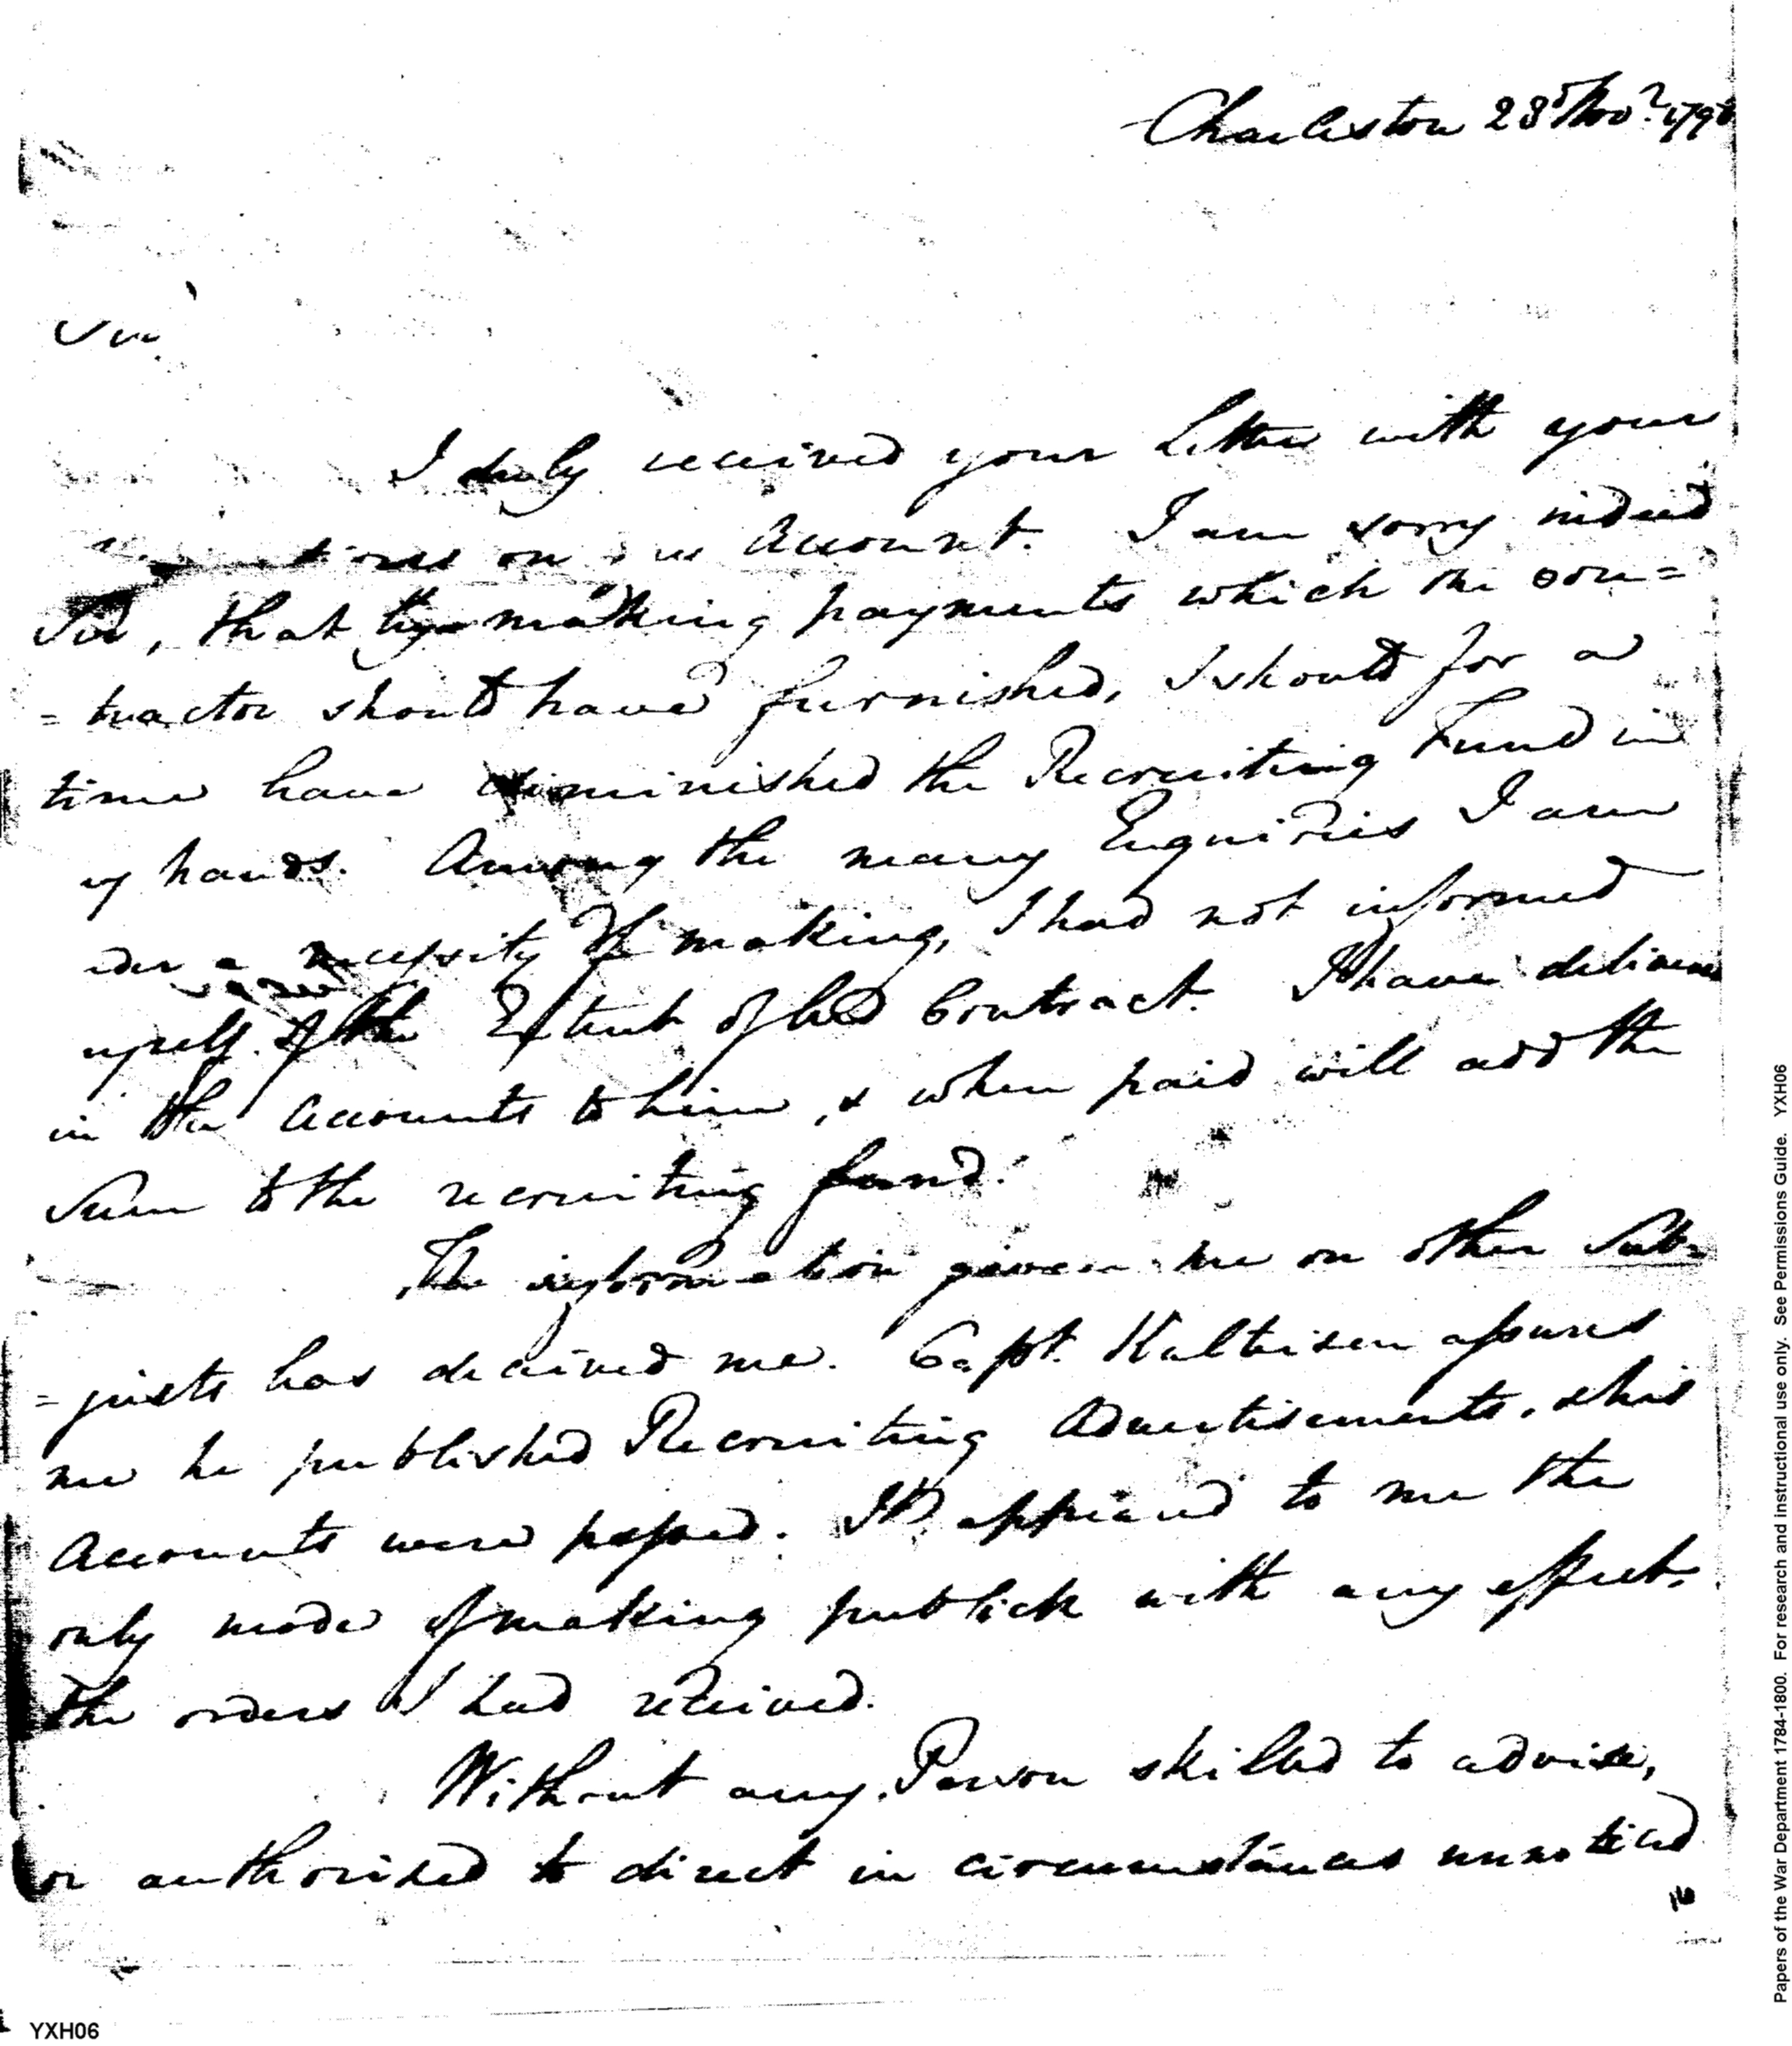 Charleston 23d Novr 1798
Sir
I duly received your Letter with your
on Account. I am sorry indeed
Sir, that by making payments which the con=
=tractor should have furnished, I should for a
time have diminished the Recruiting Fund in
my hands. Among the many Enquiries I am
under a necessity of making, I had not informed
myself of the Extent of his Contract. I have delivered
in the Accounts to him, & when paid will add the
Sum to the recruiting fund.
The information given me on other Sub=
=jects has deceived me. Capt. Kalteisen assures
me he published Recruiting Advertisements, & his
Accounts were passed. It appeared to me the
only mode of making publick with any effect.
the orders I had received.
Without any Person skilled to advise,
or authorised to direct in circumstances unnoticed
YXH06
Papers of the War Department 1784-1800. For research and instructional use only. See Permissions Guide. YXH06